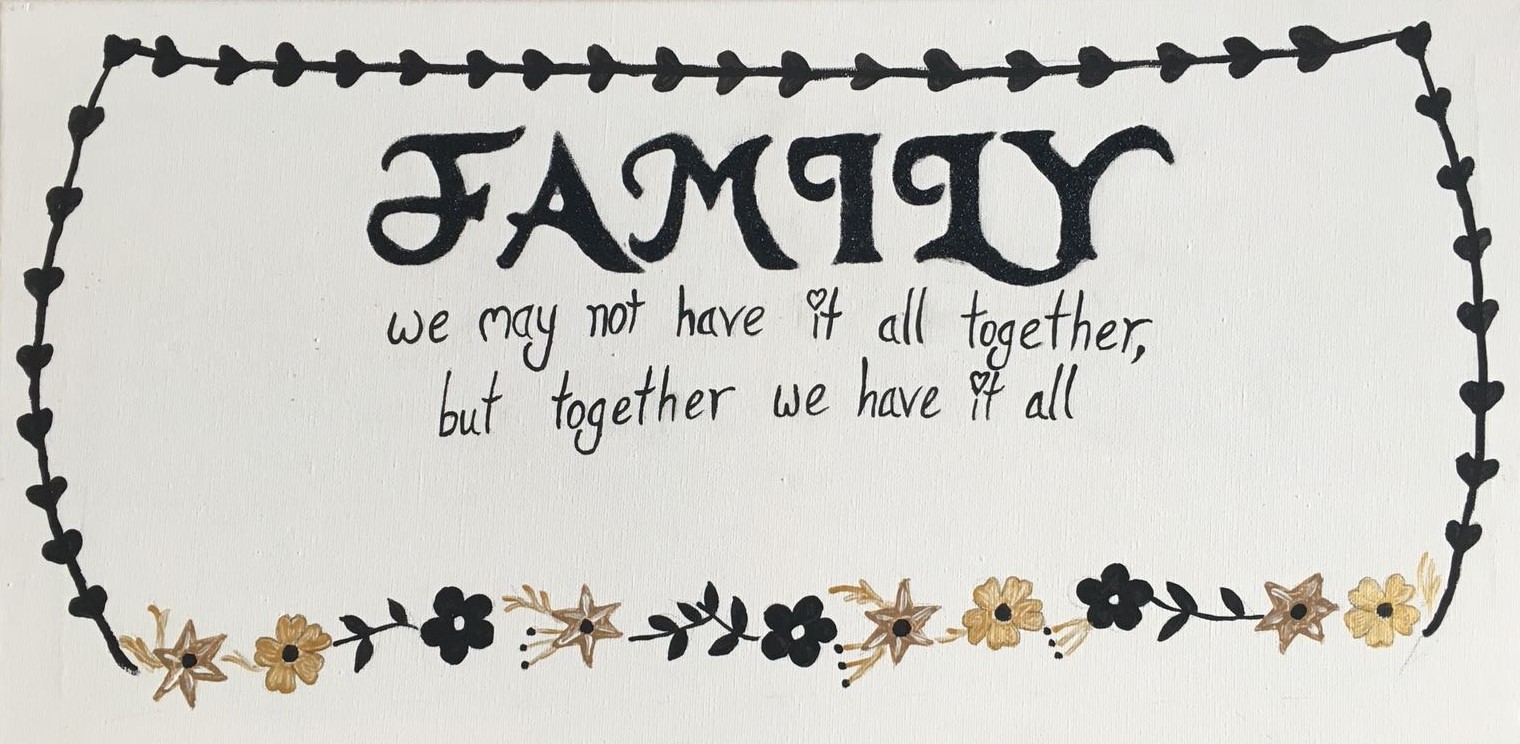 FAMILY
we may not have it all together,
but together we have it all